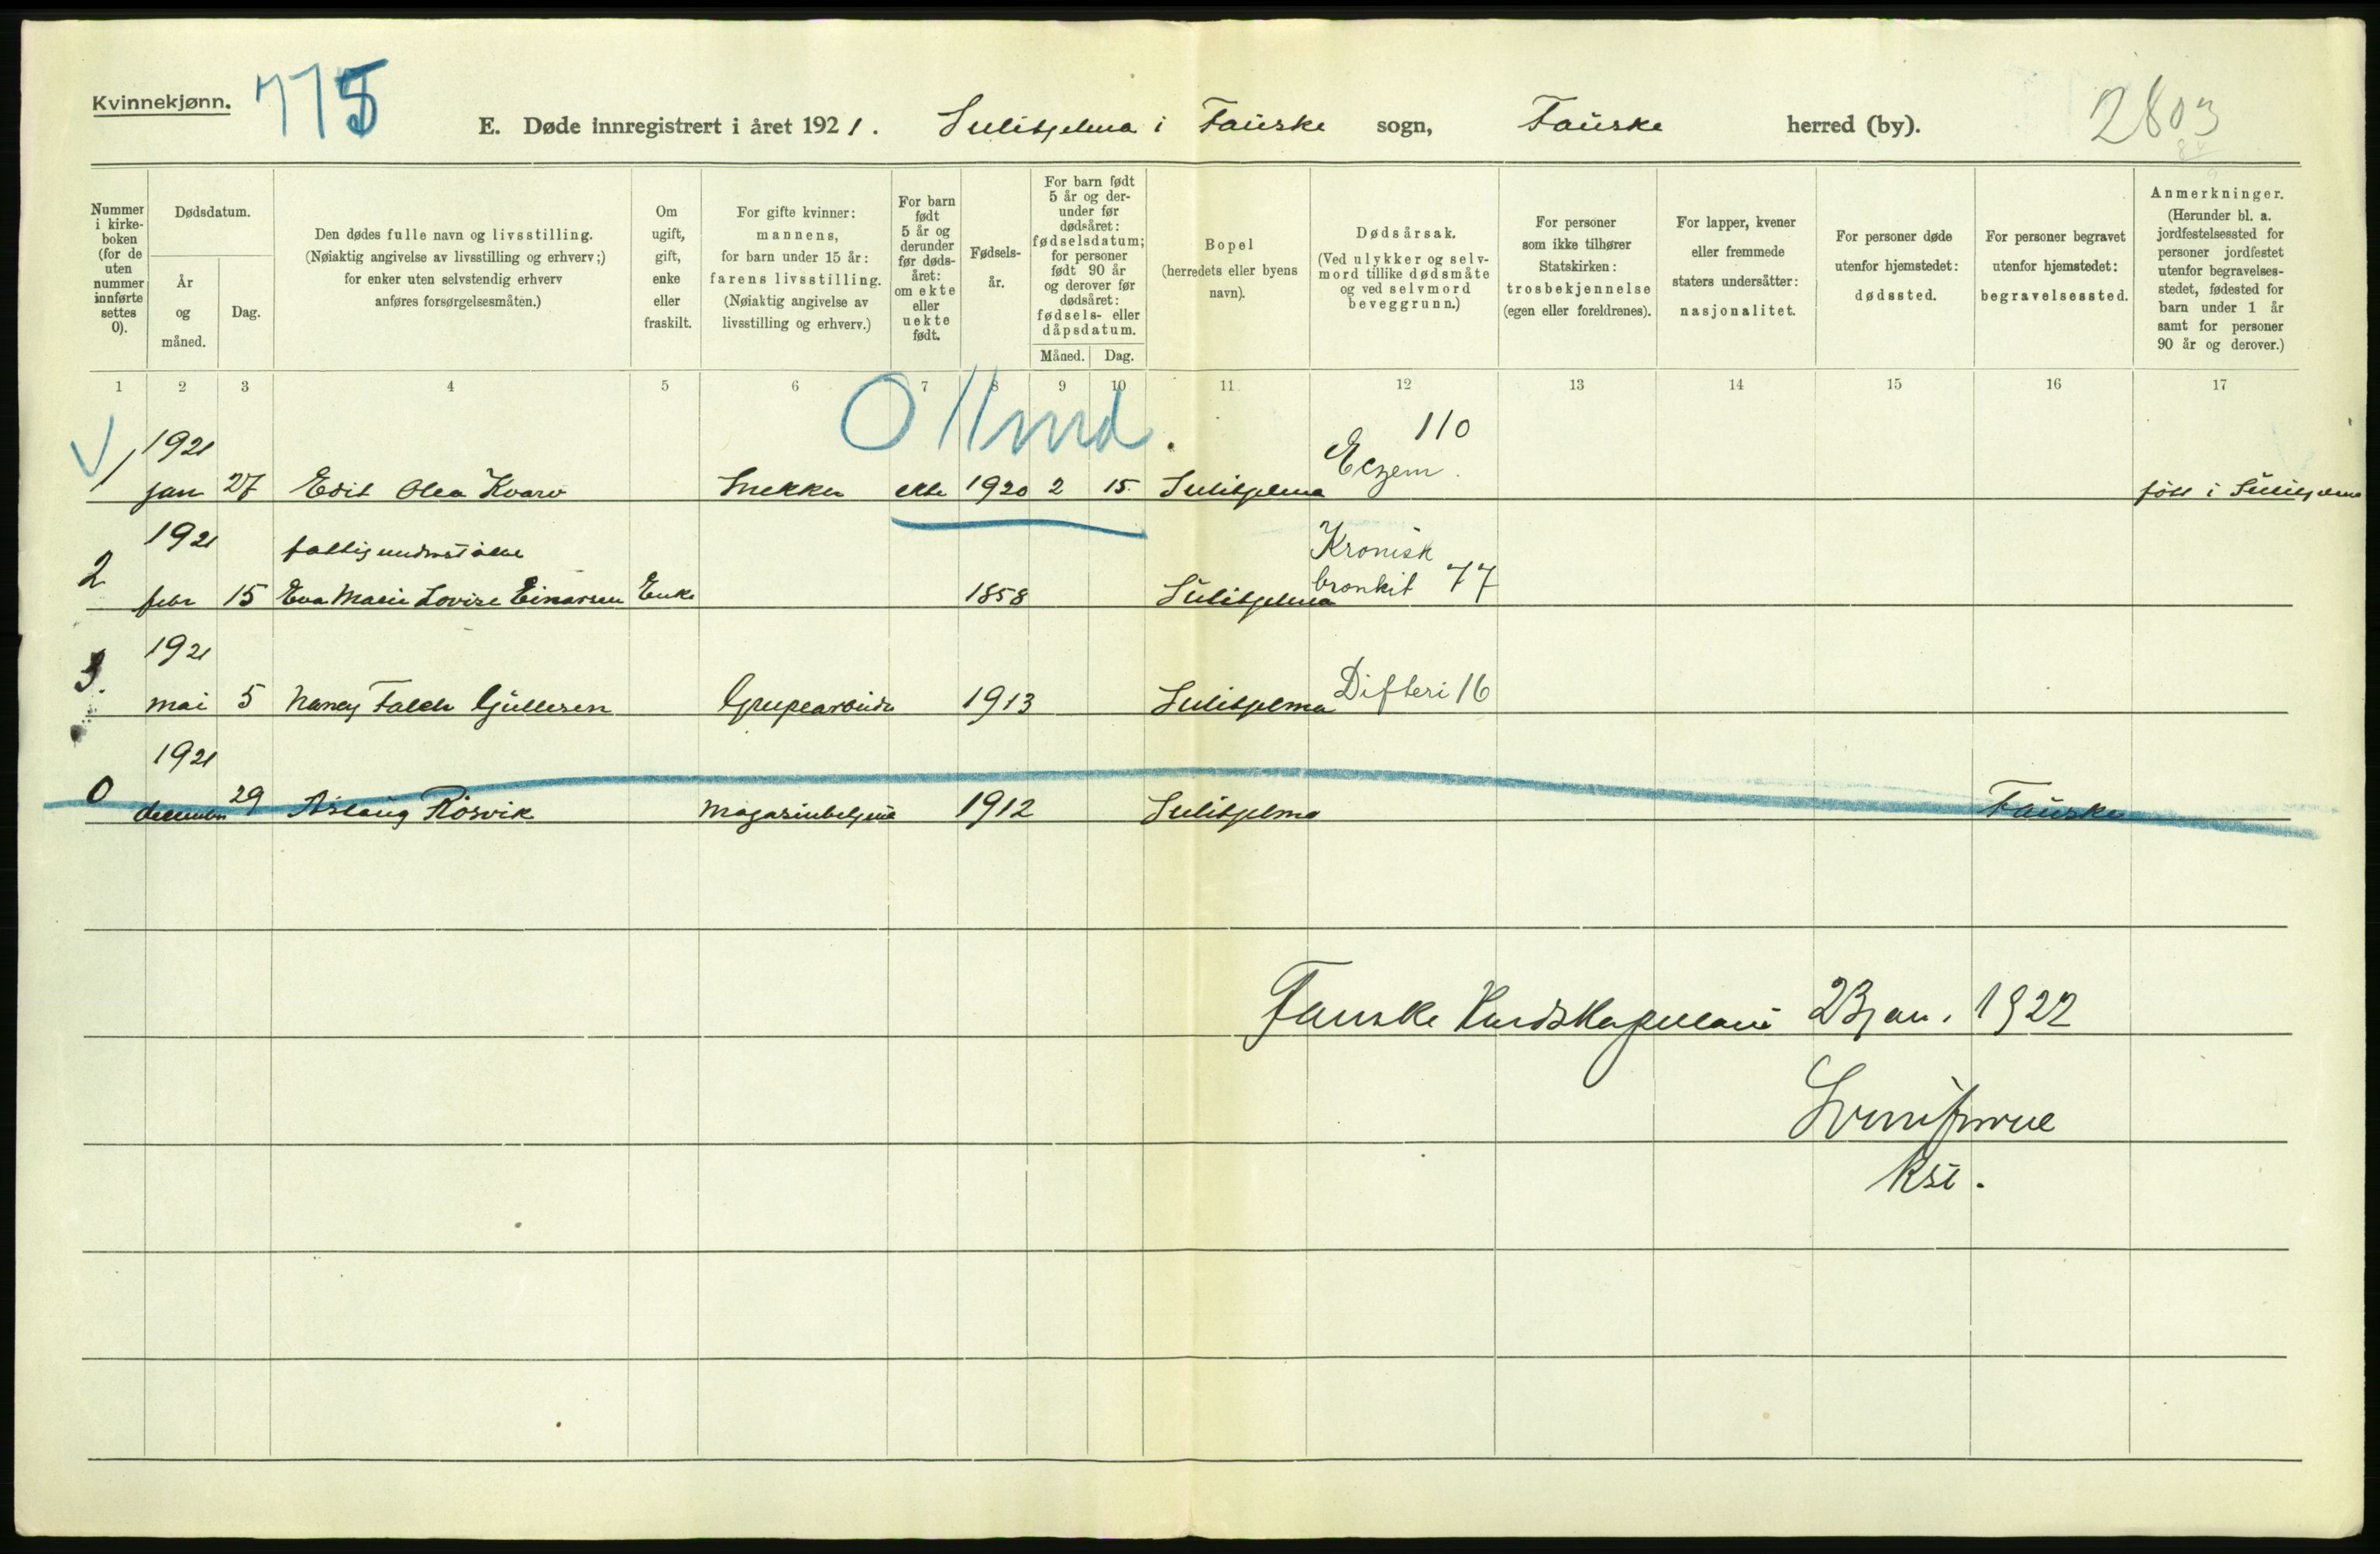 Kvinnekjønn. 775
E. Døde innregistrert i året 1921. Sulitjelma i Fauske sogn, Fauske herred (by). 2803
Nummer i kirkeboken (for de uten nummer innførte settes 0).
Dødsdatum.
År og måned.
Dag.
Den dødes fulle navn og livsstilling.
(Nøiaktig angivelse av livsstilling og erhverv;)
for enker uten selvstendig erhverv
anføres forsørgelsesmåten.)
Om ugift, gift, enke eller fraskilt.
For gifte kvinner:
mannens,
for barn under 15 år:
farens livsstilling.
(Nøiaktig angivelse av
livsstilling og erhverv.)
For barn født 5 år og derunder før dødsåret: om ekte eller uekte født.
Fødselsår.
For barn født 5 år og derunder før dødsåret: fødselsdatum; for personer født 90 år og derover før dødsåret: fødsels- eller dåpsdatum.
Måned. Dag.
Bopel
(herredets eller byens
navn).
Dødsårsak.
(Ved ulykker og selvmord tillike dødsmåte og ved selvmord beveggrunn.)
For personer
som ikke tilhører
Statskirken:
trosbekjennelse
(egen eller foreldrenes).
For lapper, kvener
eller fremmede
staters undersåtter:
nasjonalitet.
For personer døde
utenfor hjemstedet:
dødssted.
For personer begravet
utenfor hjemstedet:
begravelsessted.
Anmerkninger.
(Herunder bl. a. jordfestelsessted for personer jordfestet utenfor begravelsesstedet, fødested for barn under 1 år samt for personer 90 år og derover.)
1 2 3 4 5 6 7 8 9 10 11 12 13 14 15 16 17
0 11 md.
1921 110
1 jan 27 Edit Olea Kvarv Snekker ekte 1920 2 15 Sulitjelma Eczem. født i Sulitjelma
1921 fattigunderstøttet Kronisk
2 febr 15 Eva Marie Lovise Einarsen Enke 1858 Sulitjelma bronkit 77
1921
3. mai 5 Nancy Falch Gjullesen Grupearbeider 1913 Sulitjelma Difteri 16
1921
0 december 29 Aslaug Røsvik magasinbetjent 1912 Sulitjelma Fauske
Fauske 23 jan. 1922